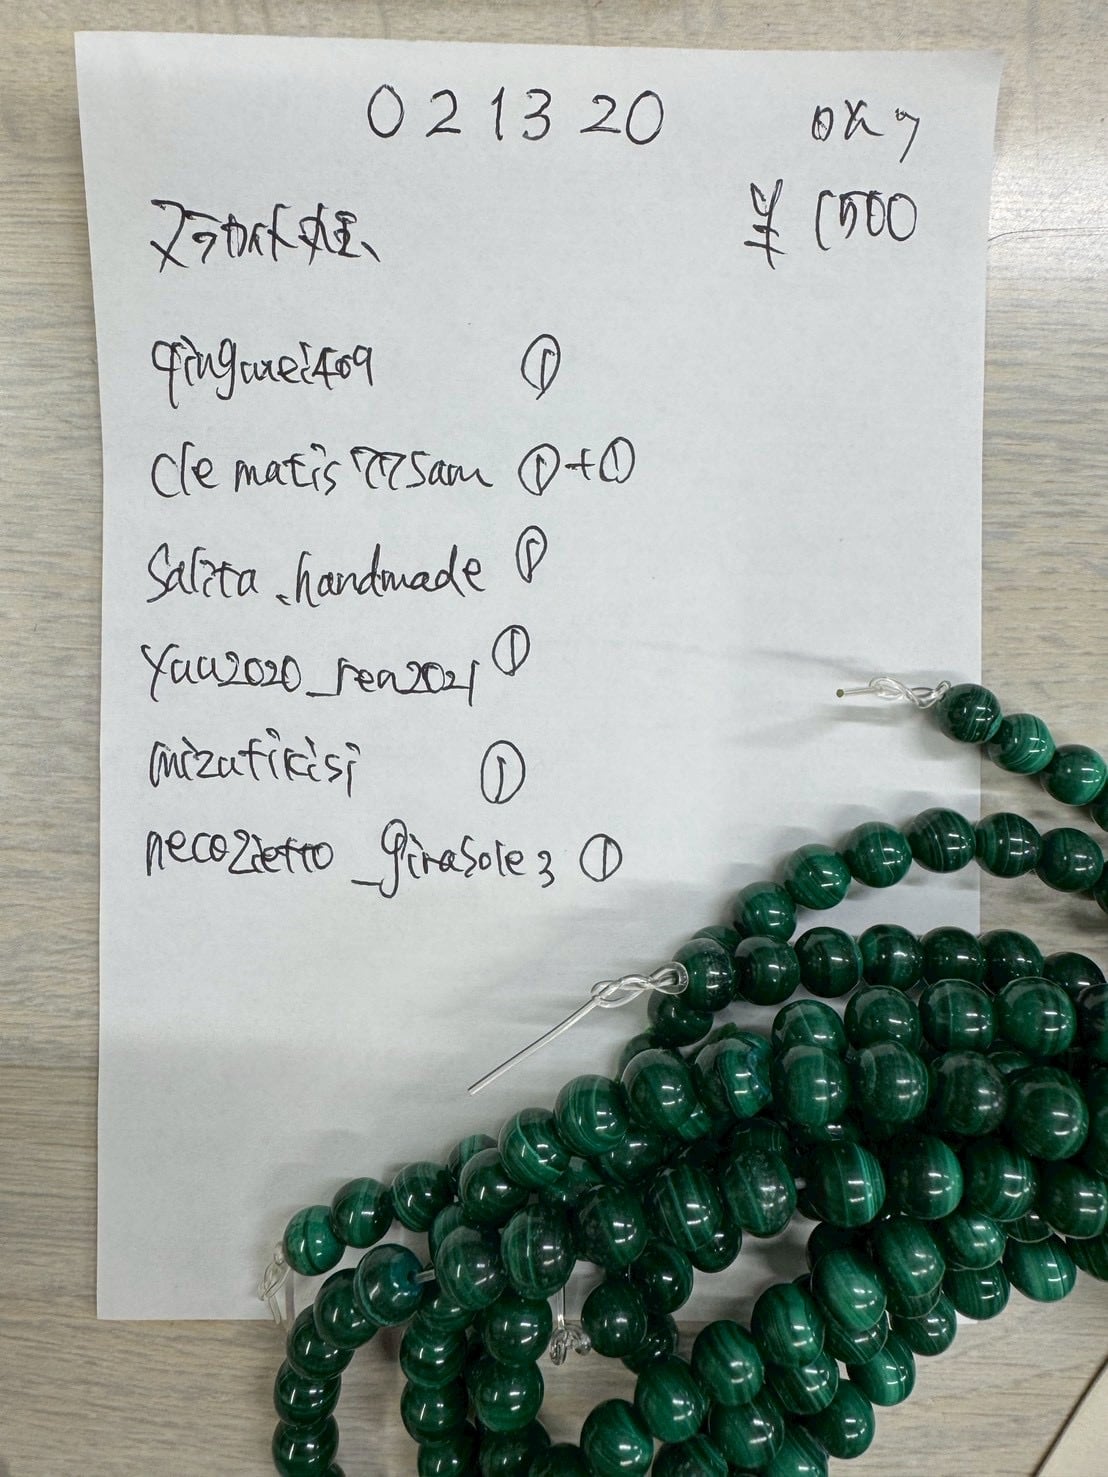 021320
¥1500
qingmei409 ①
clematis775am ①+①
Salita_handmade ①
yuu2020_ren2021 ①
mizutikisi ①
necozietto_girasole3 ①